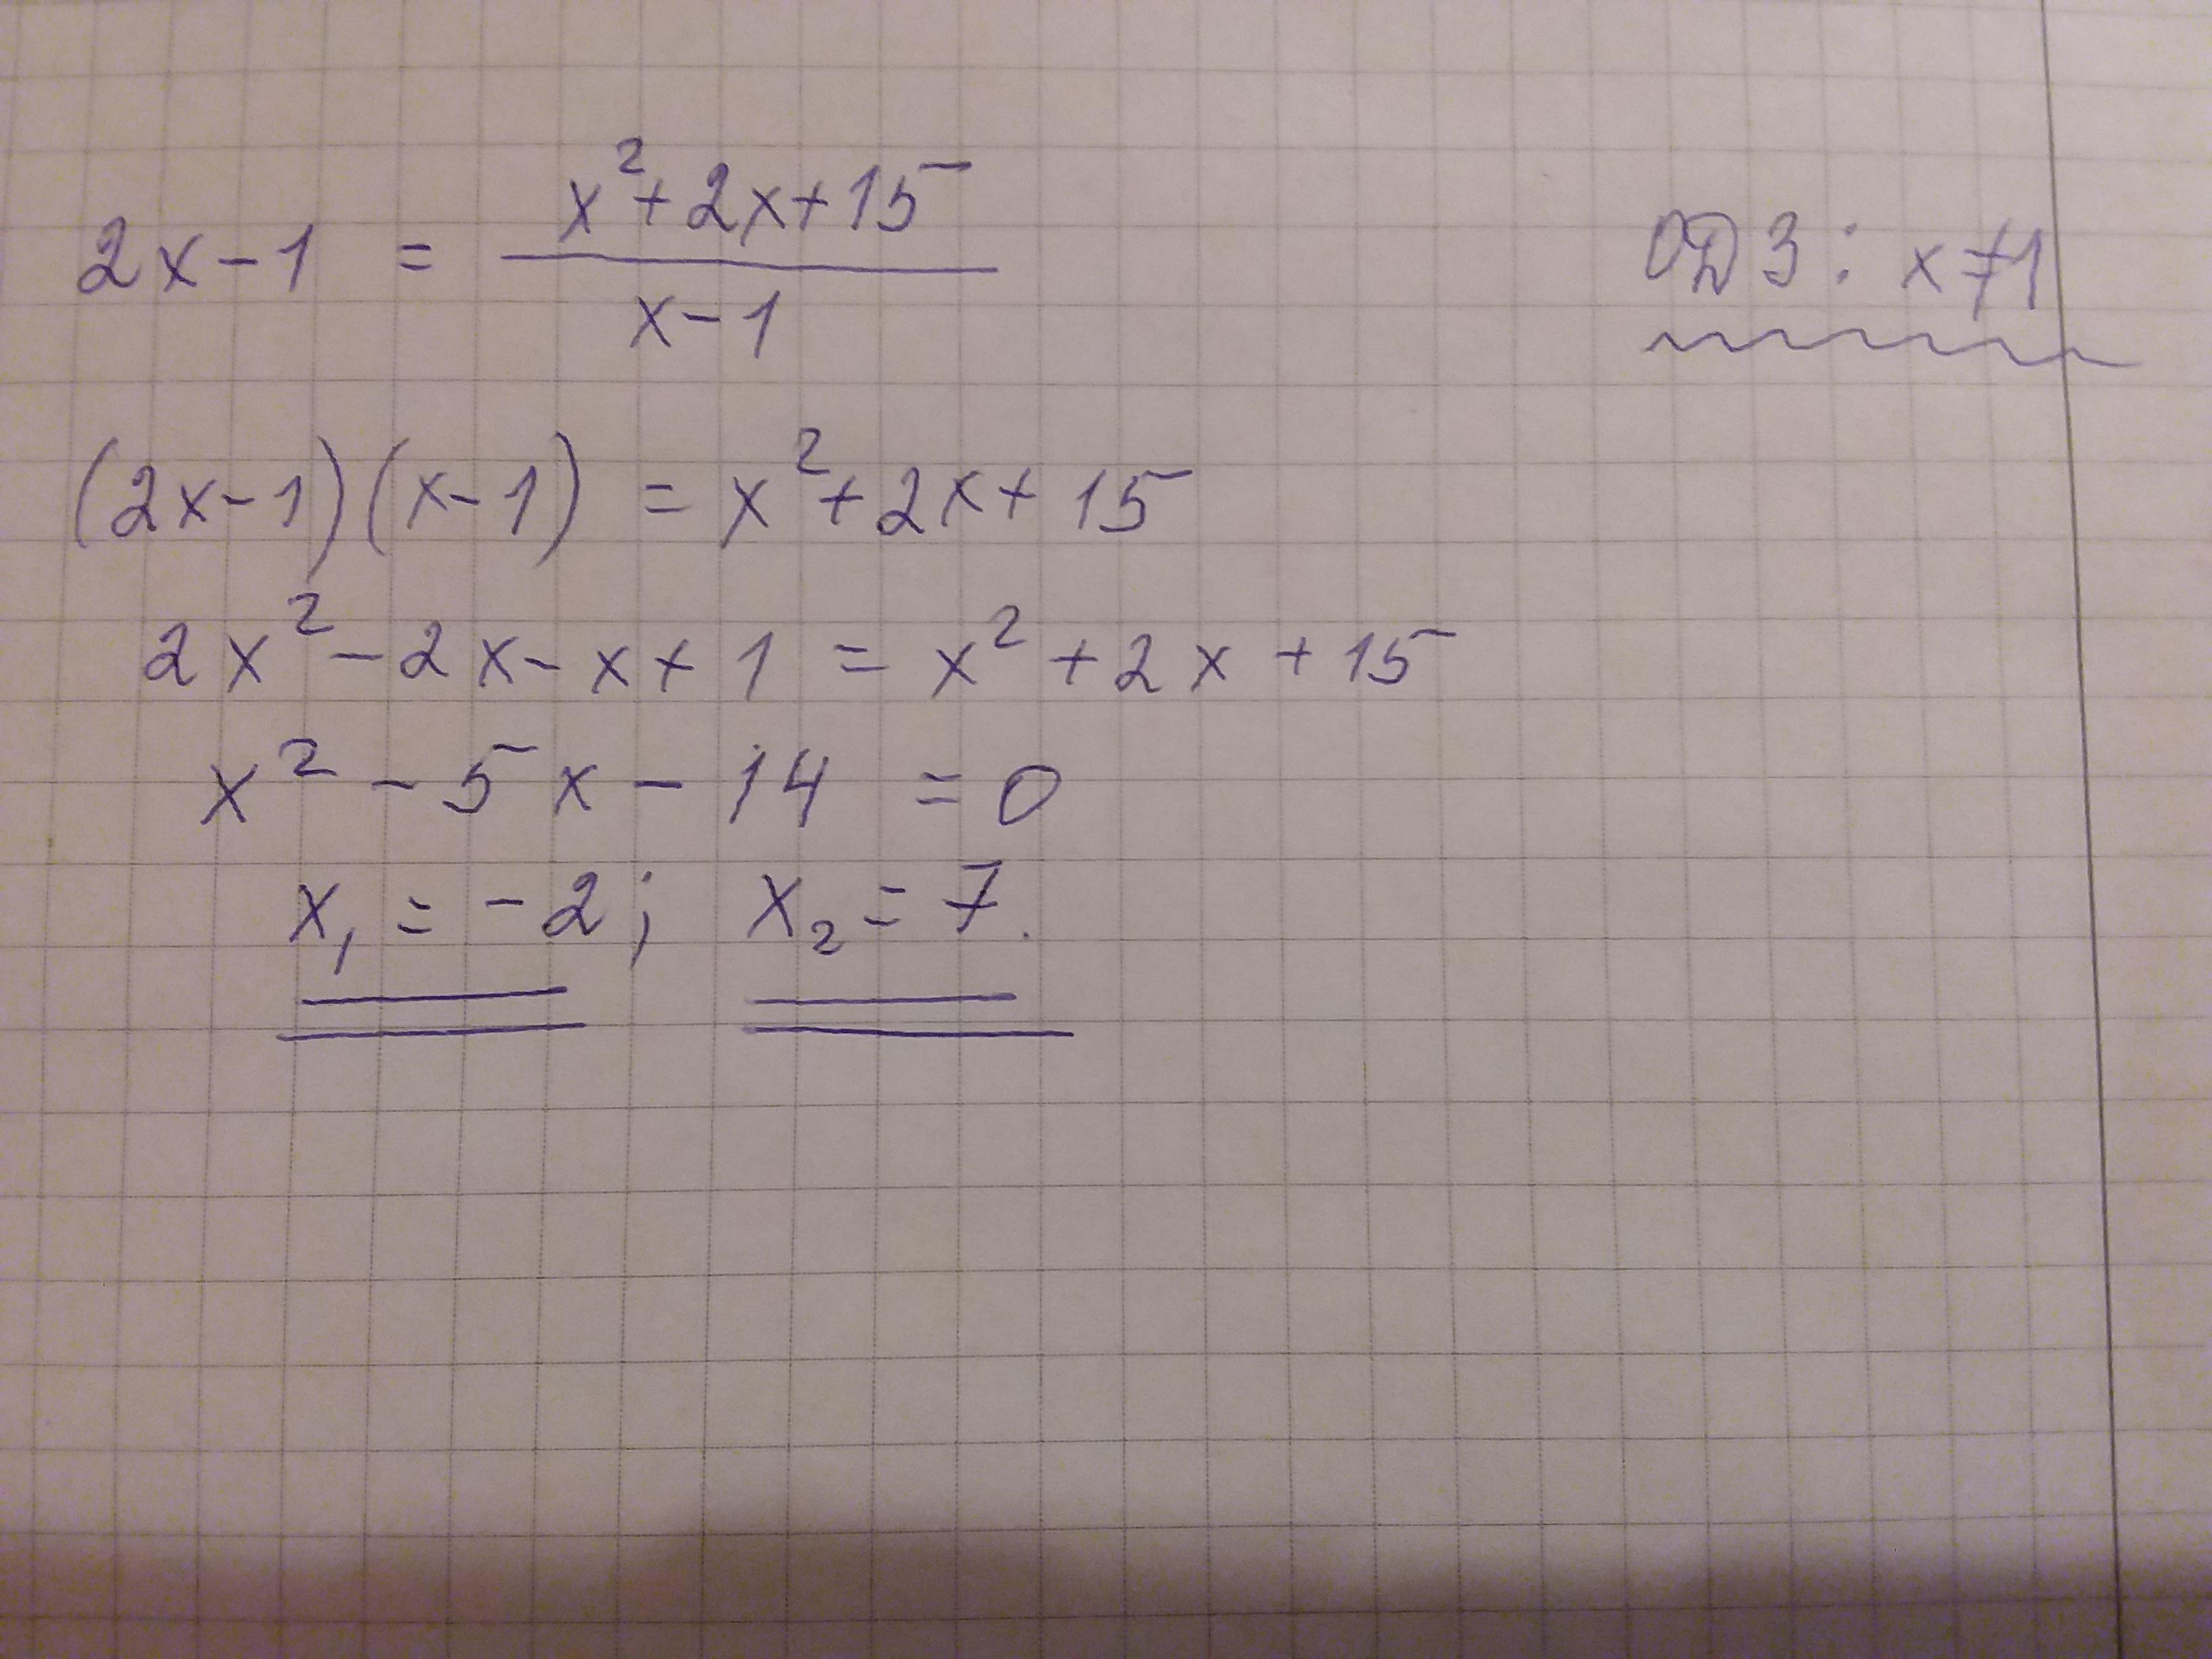 2x-1 = (x²+2x+15)/(x-1) ОДЗ: x≠1
(2x-1)(x-1) = x²+2x+15
2x²-2x-x+1 = x²+2x+15
x²-5x-14 = 0
x₁ = -2; x₂ = 7.